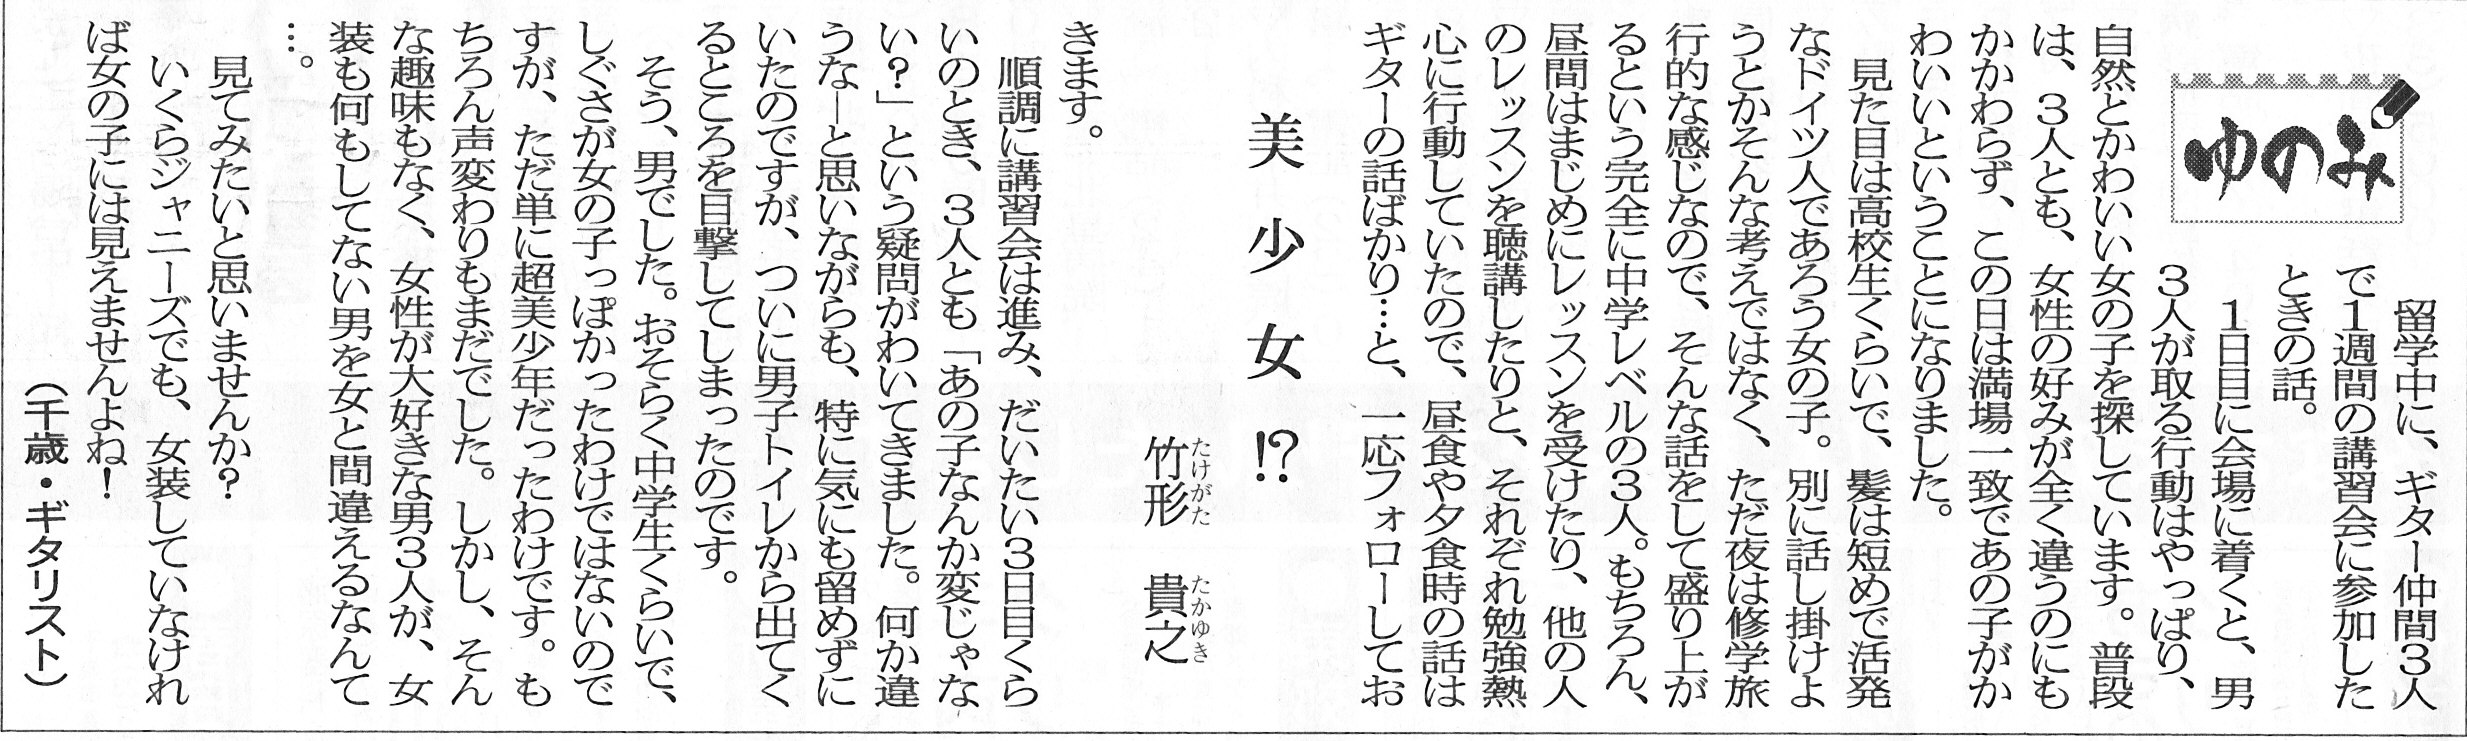 ゆのみ
美少女!?
竹形 貴之
たけがた たかゆき
留学中に、ギター仲間3人
で1週間の講習会に参加した
ときの話。
1日目に会場に着くと、男
3人が取る行動はやっぱり、
自然とかわいい女の子を探しています。普段
は、3人とも、女性の好みが全く違うのにも
かかわらず、この日は満場一致であの子がか
わいいということになりました。
見た目は高校生くらいで、髪は短めで活発
なドイツ人であろう女の子。別に話し掛けよ
うとかそんな考えではなく、ただ夜は修学旅
行的な感じなので、そんな話をして盛り上が
るという完全に中学レベルの3人。もちろん、
昼間はまじめにレッスンを受けたり、他の人
のレッスンを聴講したりと、それぞれ勉強熱
心に行動していたので、昼食や夕食時の話は
ギターの話ばかり…と、一応フォローしてお
きます。
順調に講習会は進み、だいたい3日目くら
いのとき、3人とも「あの子なんか変じゃな
い?」という疑問がわいてきました。何か違
うな―と思いながらも、特に気にも留めずに
いたのですが、ついに男子トイレから出てく
るところを目撃してしまったのです。
そう、男でした。おそらく中学生くらいで、
しぐさが女の子っぽかったわけではないので
すが、ただ単に超美少年だったわけです。も
ちろん声変わりもまだでした。しかし、そん
な趣味もなく、女性が大好きな男3人が、女
装も何もしてない男を女と間違えるなんて
…。
見てみたいと思いませんか?
いくらジャニーズでも、女装していなけれ
ば女の子には見えませんよね!
(千歳・ギタリスト)